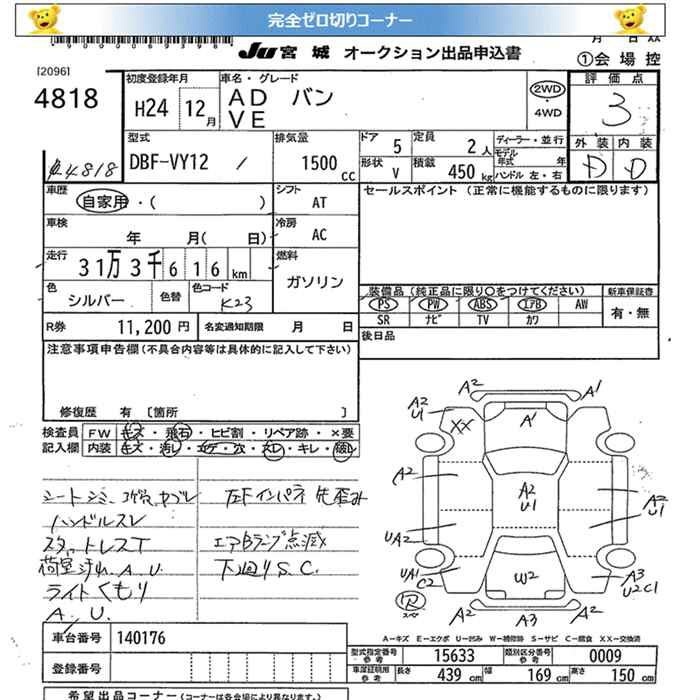 完全ゼロ切りコーナー
JU 宮城 オークション出品申込書
月 日 AA
①会場控
[2096]
4818
初度登録年月
H24 12月
車名・グレード
AD バン
VE
2WD
・
4WD
評価点
3
型式
DBF-VY12 /
排気量
1500 cc
ドア 5
定員 2人
形状 V
積載 450 kg
ディーラー・並行
モデル年式 年
ハンドル 左・右
外装 内装
D D
R4818
車歴
自家用・( )
シフト
AT
セールスポイント (正常に機能するものに限ります)
車検
年 月( 日)
冷房
AC
走行
31万3千616km
燃料
ガソリン
色
シルバー
色替
色コード
K23
装備品(純正品に限り○をつけてください)
PS PW ABS エアB AW
SR ナビ TV カワ
新車保証書
有・無
R券 11,200円
名変通知期限 月 日
後日品
注意事項申告欄(不具合内容等は具体的に記入して下さい)
修復歴 有 [箇所 ]
検査員
記入欄
FW キズ・飛石・ヒビ割・リペア跡・×要
内装 キズ・汚レ・コゲ・穴・スレ・キレ・破レ
シートシミ、コゲ穴、ヤブレ
ハンドルスレ
スタットレスT
荷室汚れ A.U.
ライトくもり
A.U.
左Fインパネ先歪み
エアBランプ点滅
下廻りS.C.
A2
A1
A2
U1
XX
A1
A2
A2
U1
A2
U1
UA2
UA1
C2
W2
A3
U2C1
R
スペ
A2
A3
A2
A-キズ E-エクボ U-凹み W-補修跡 S-サビ C-腐食 XX-交換済
車台番号 140176
登録番号
型式指定番号
参考
15633
類別区分番号
参考
0009
車庫証明用
参考
長さ 439 cm 幅 169 cm 高さ 150 cm
希望出品コーナー(コーナーは各会場により異なります。)